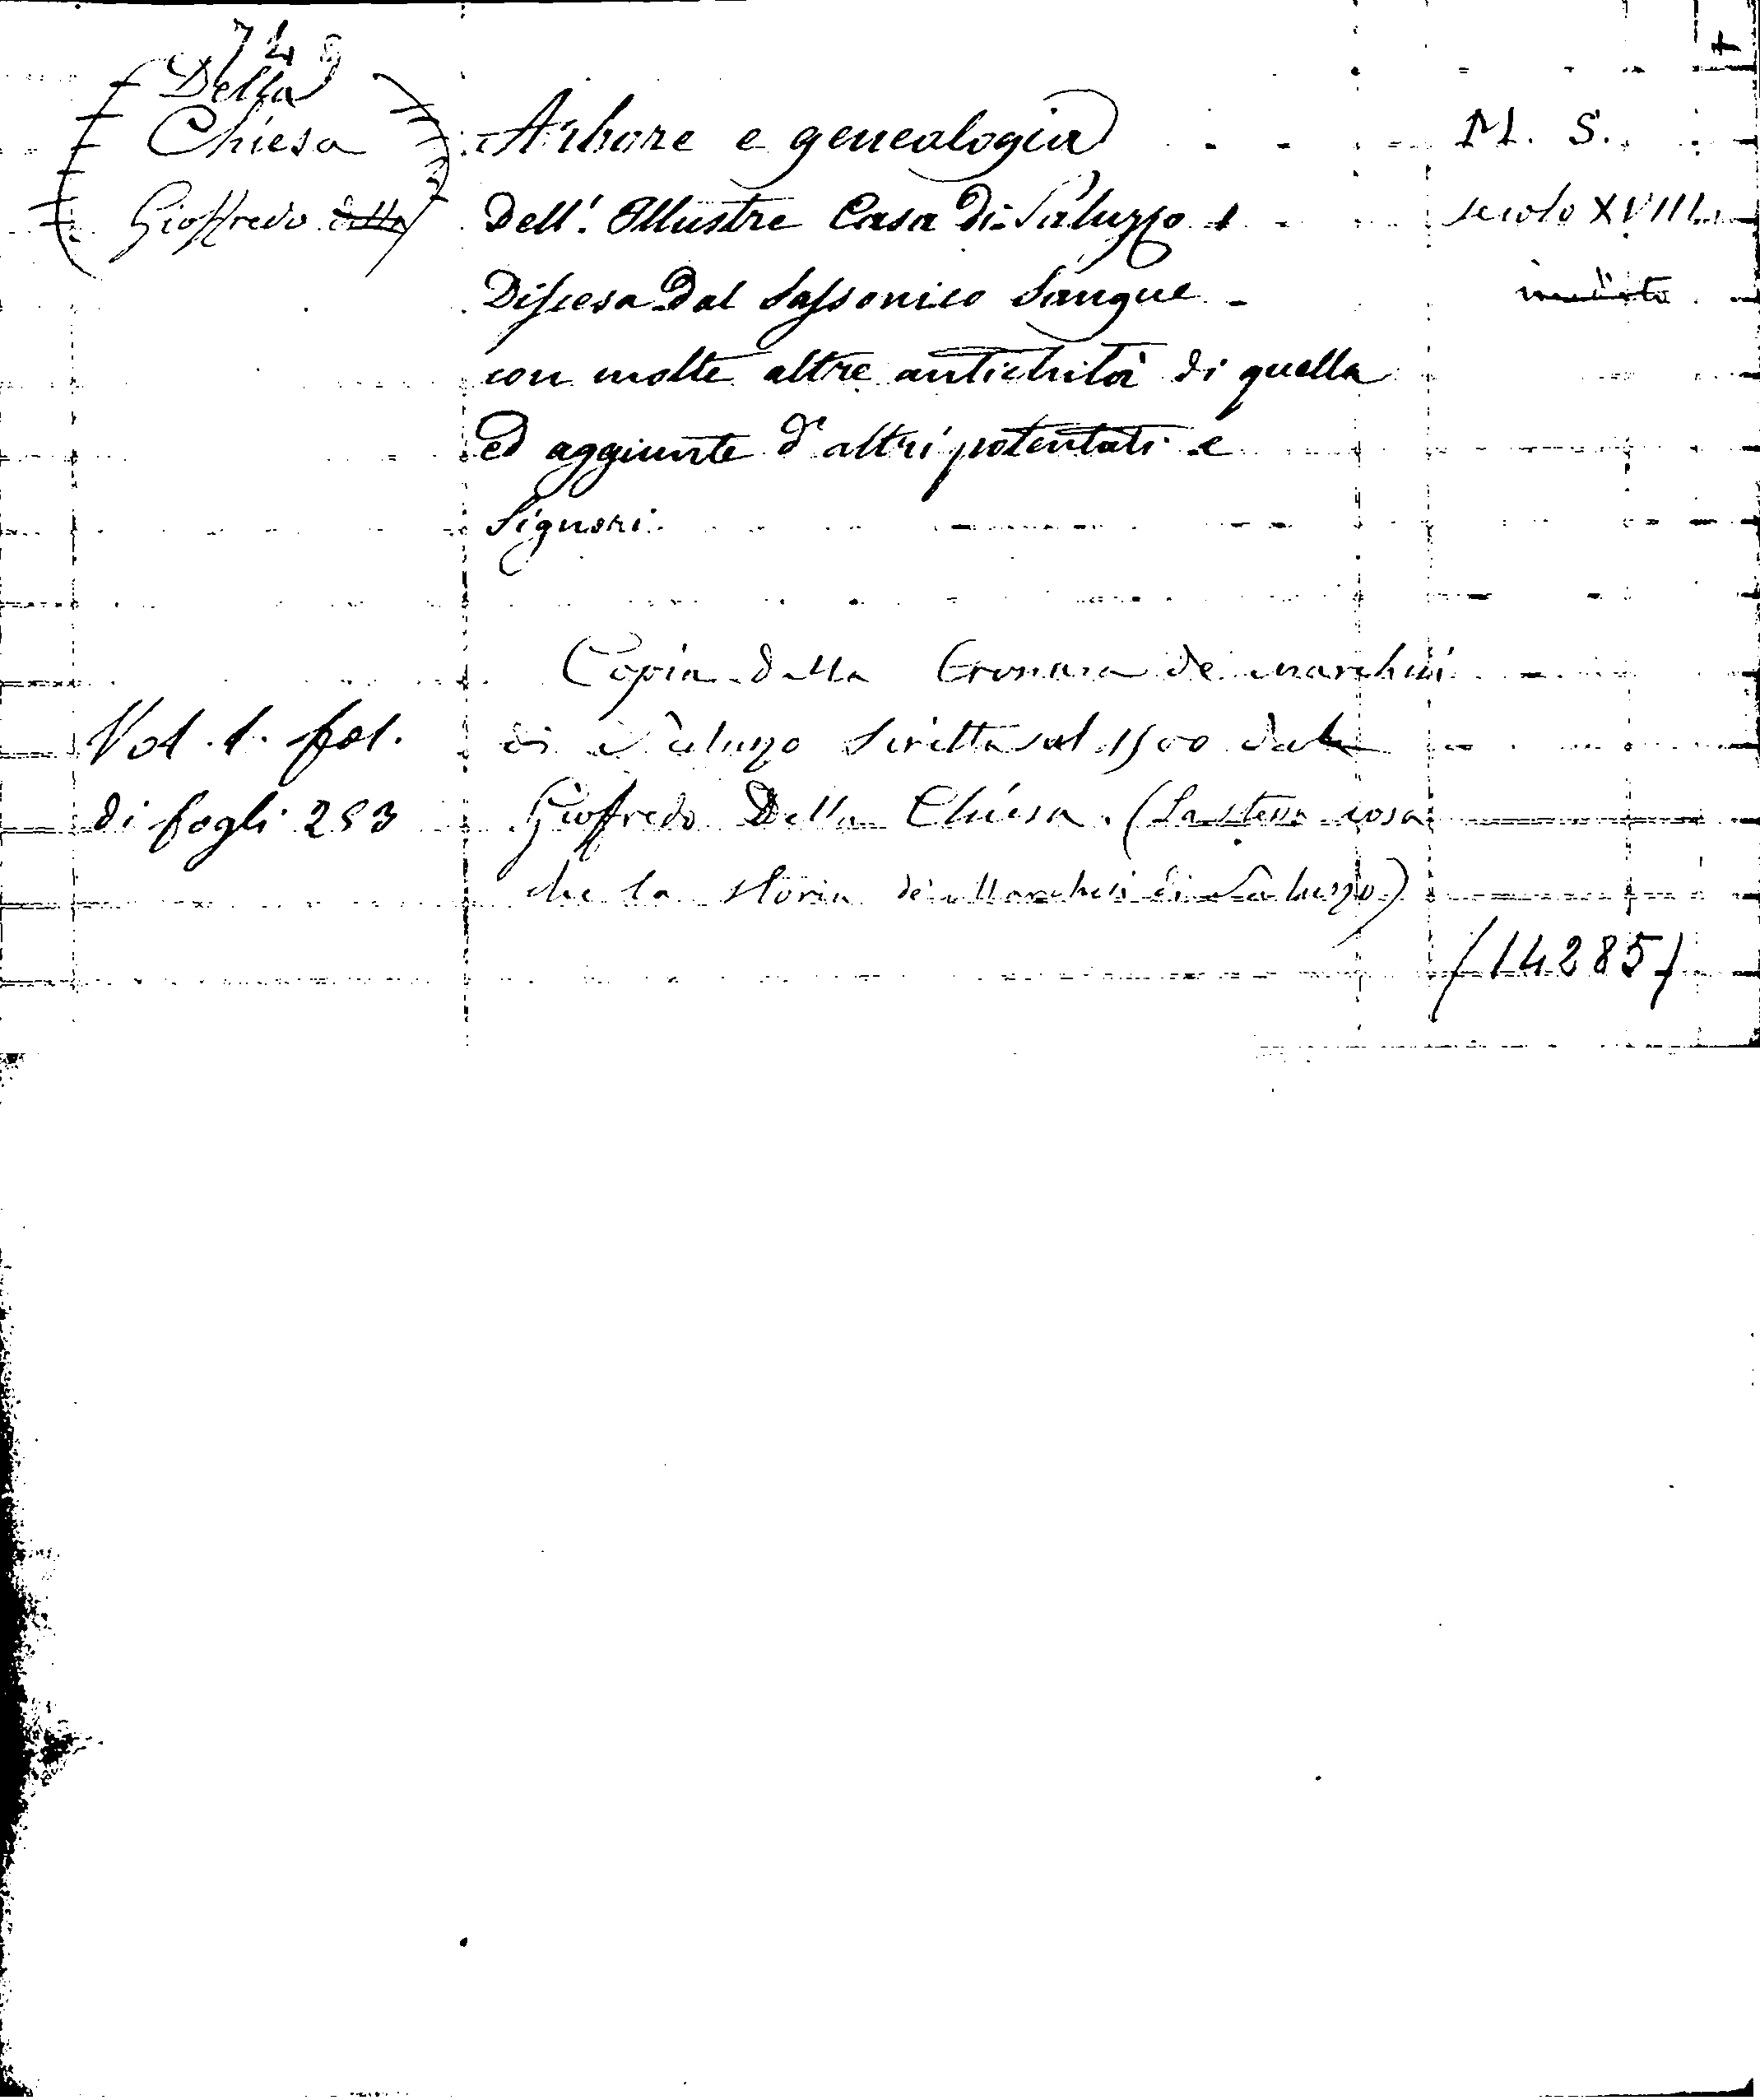 749
Della
Chiesa
Gioffredo della
Arbore e genealogia
Dell'Illustre Casa di Saluzzo
Discesa Dal Sassonico Sangue
con molte altre antichità di quella
ed aggiunte d'altri potentati e
Signori.
M. S.
secolo XVIII
inedito
Copia della Cronaca de' marchesi
di Saluzzo scritta nel 1500 da
Gioffredo Della Chiesa. (La stessa cosa
che la storia de' Marchesi di Saluzzo)
Vol. 1. fol.
di fogli 253
(14285)